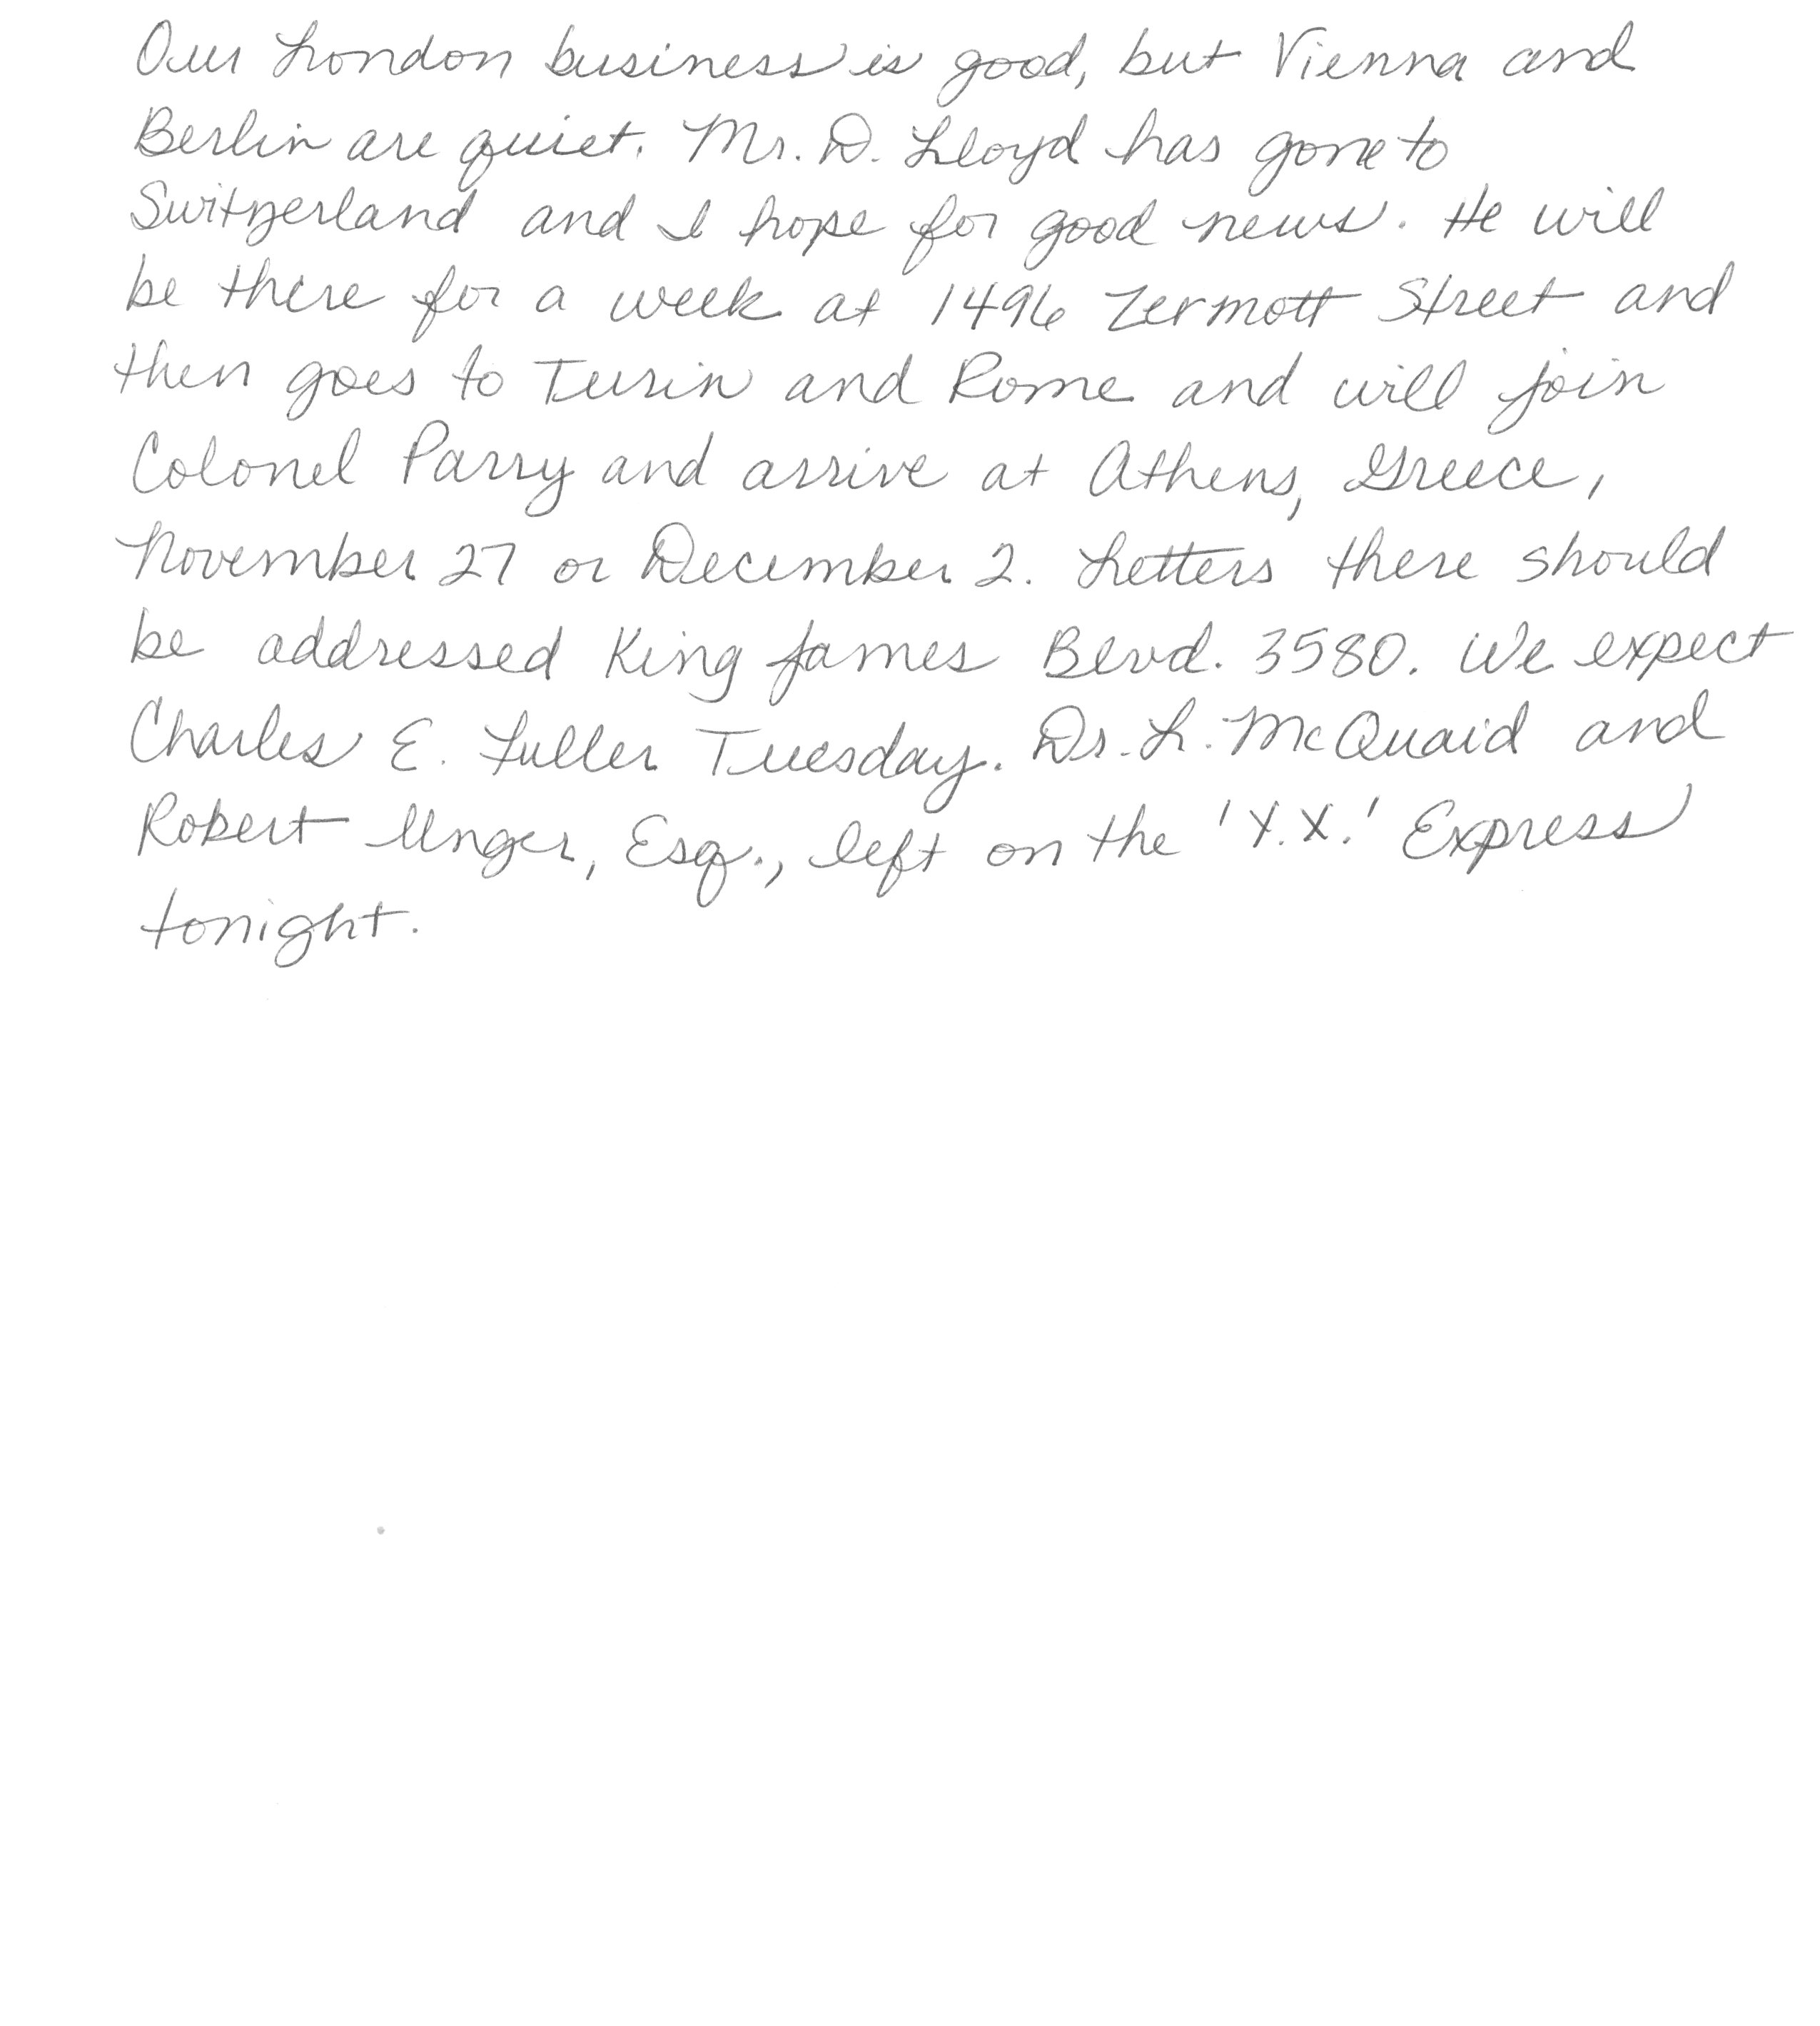 Our London business is good, but Vienna and
Berlin are quiet. Mr. D. Lloyd has gone to
Switzerland and I hope for good news. He will
be there for a week at 1496 Zermott Street and
then goes to Turin and Rome and will join
Colonel Parry and arrive at Athens, Greece,
November 27 or December 2. Letters there should
be addressed King James Blvd. 3580. We expect
Charles E. Fuller Tuesday. Dr. L. McQuaid and
Robert Unger, Esq., left on the 'X.X.' Express
tonight.